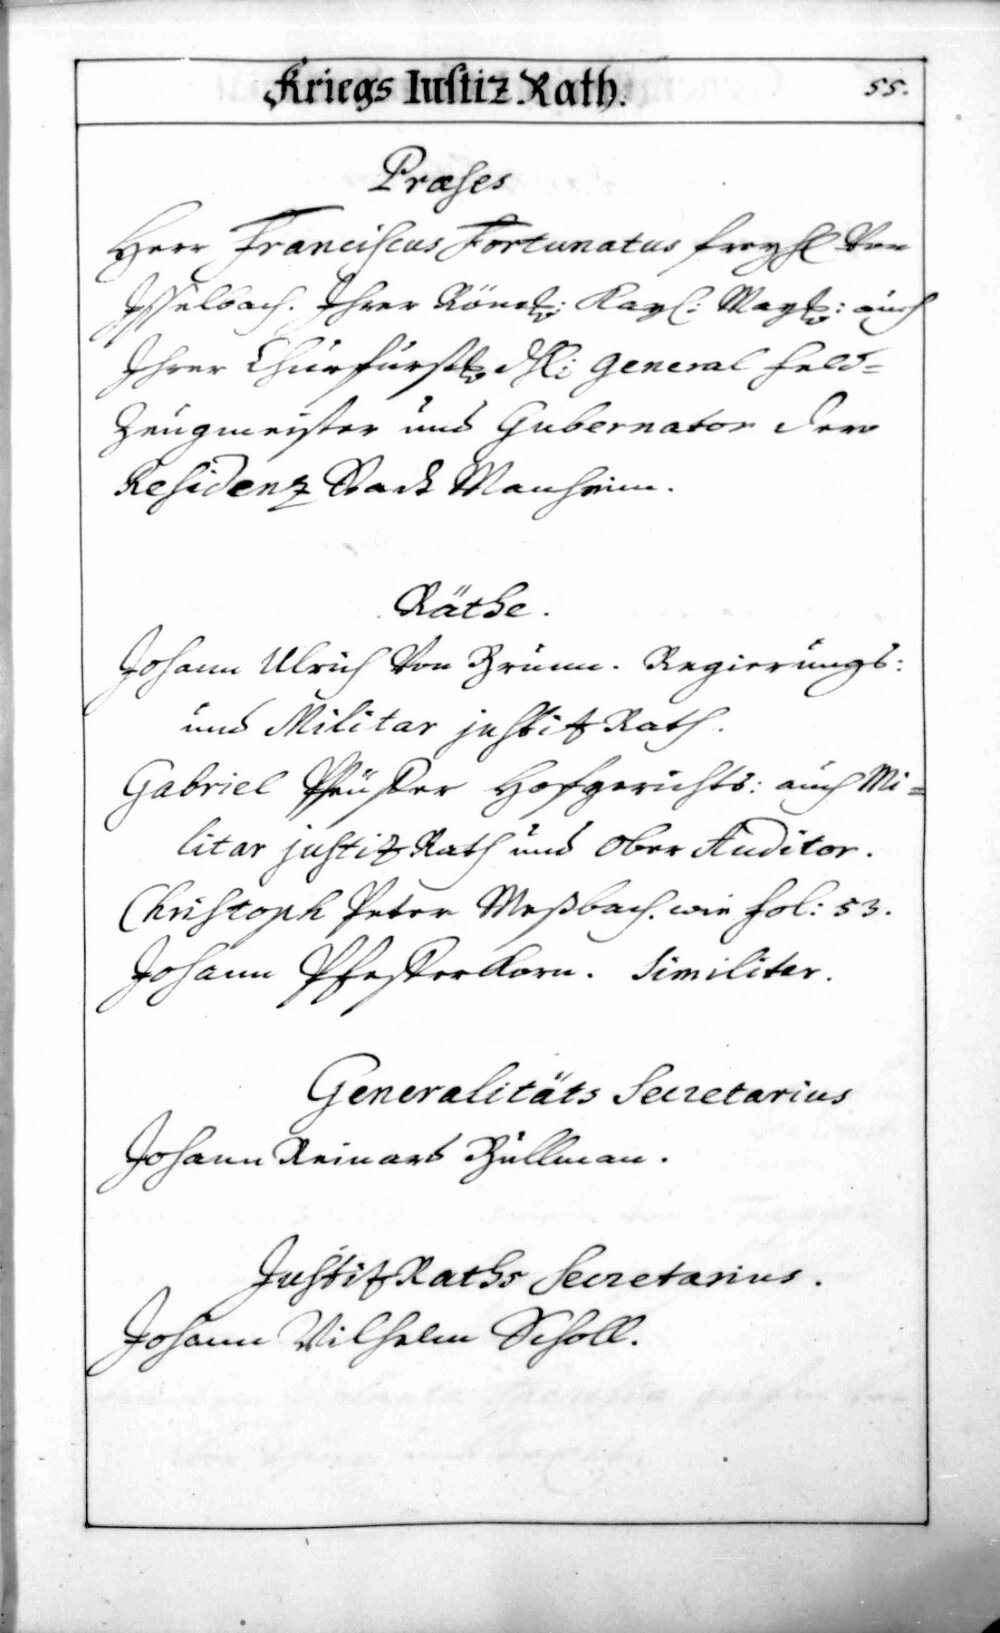 Kriegs Iustiz Rath. 55.
Præses
Herr Franciscus Fortunatus freyh von
Isselbach. Ihrer Röm: Kayl: Mayt: auch
Ihrer Churfürstl dhl: General feld-
Zeugmeister und Gubernator dero
Residenz Stadt Manheim.
Räthe.
Johann Ulrich von Brünn. Regierungs:
und Militar justitz Rath.
Gabriel Hofgerichts: auch Mi-
litar justitz Rath und Ober Auditor.
Christoph Peter Meßbach. wie fol: 53.
Johann Pfefferkorn. Similiter.
Generalitäts Secretarius
Johann Reinard Büllman.
Justitz Raths Secretarius.
Johann Wilhelm Scholl.